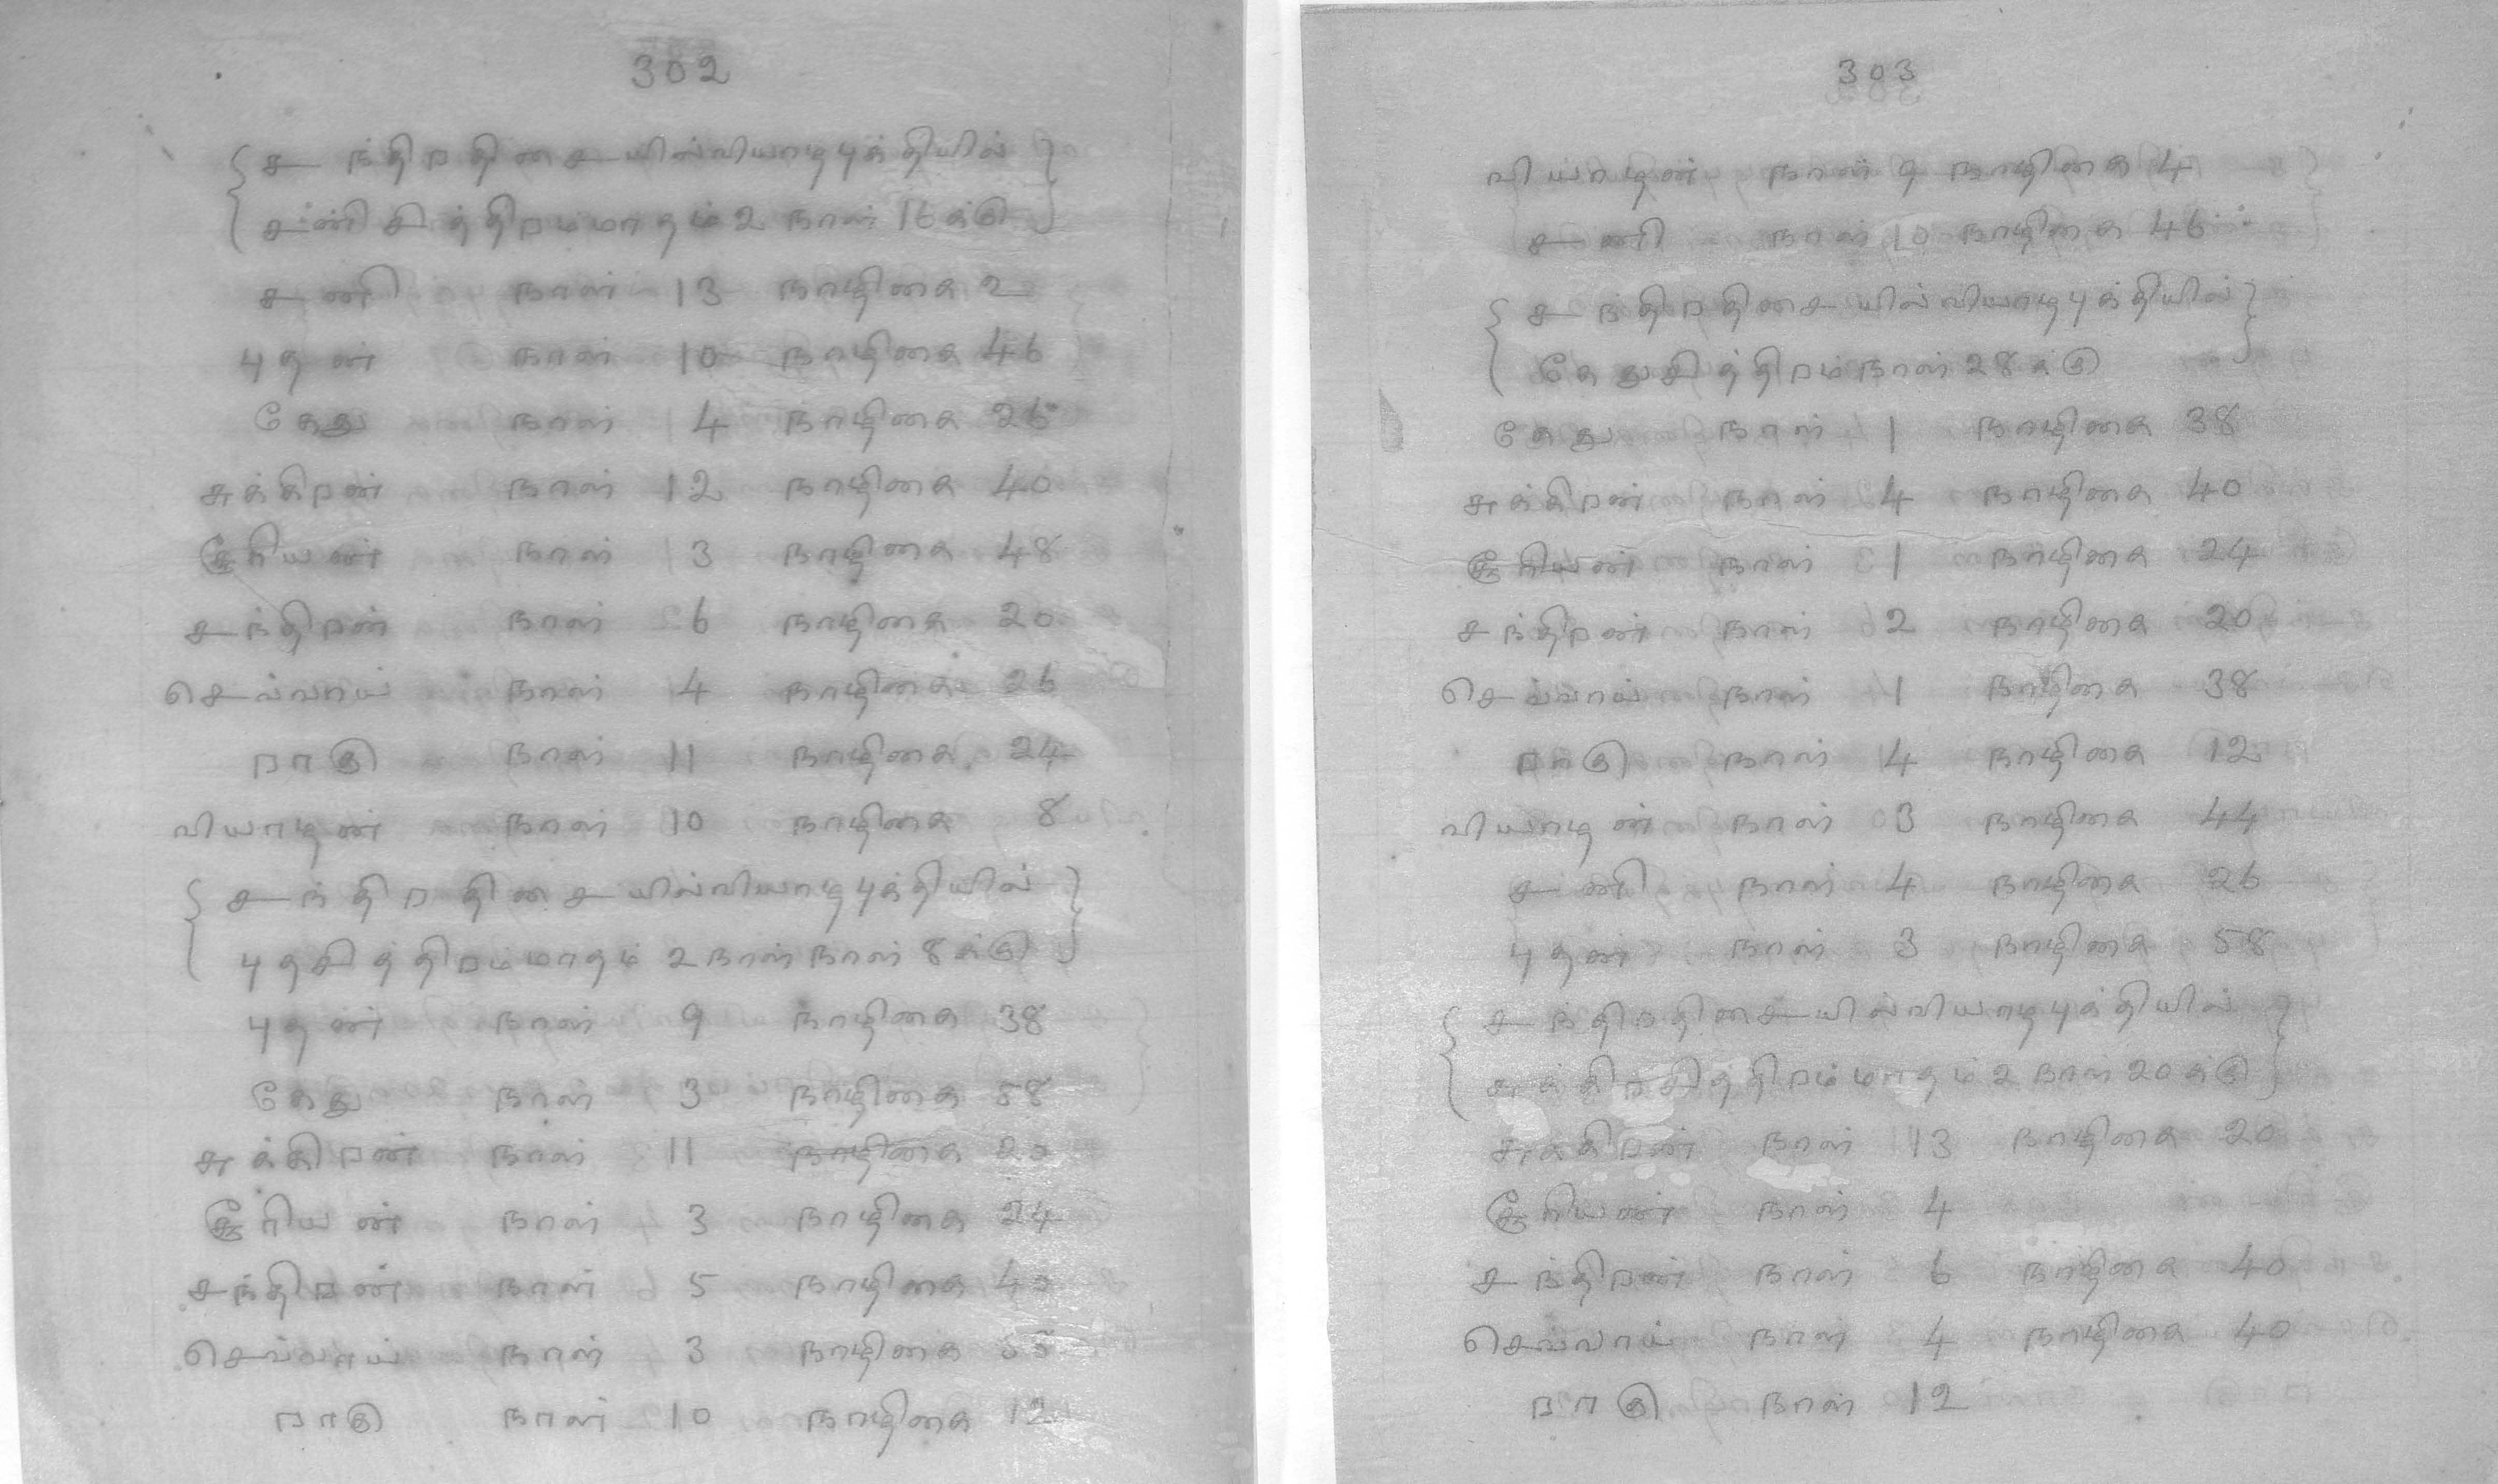 302
{ சந்திறதிசையில்வியாழபுக்தியில் }
{ சனிசித்திறம்மாதம் 2 நாள் 16க்கு }
சனி நாள் 13 நாழிகை 2
புதன் நாள் 10 நாழிகை 46
கேது நாள் 4 நாழிகை 26
சுக்கிறன் நாள் 12 நாழிகை 40
சூரியன் நாள் 3 நாழிகை 48
சந்திறன் நாள் 6 நாழிகை 20
செவ்வாய் நாள் 4 நாழிகை 26
றாகு நாள் 11 நாழிகை 24
வியாழன் நாள் 10 நாழிகை 8
{ சந்திறதிசையில்வியாழபுக்தியில் }
{ புதசித்திறம்மாதம் 2 நாள் நாள் 8க்கு }
புதன் நாள் 9 நாழிகை 38
கேது நாள் 3 நாழிகை 58
சுக்கிறன் நாள் 11 நாழிகை 20
சூரியன் நாள் 3 நாழிகை 24
சந்திறன் நாள் 5 நாழிகை 40
செவ்வாய் நாள் 3 நாழிகை
றாகு நாள் 10 நாழிகை 12
303
வியாழன் நாள் 9 நாழிகை 4
சனி நாள் 10 நாழிகை 46
{ சந்திறதிசையில்வியாழபுக்தியில் }
{ கேதுசித்திறம்நாள் 28க்கு
கேது நாள் 1 நாழிகை 38
சுக்கிறன் நாள் 4 நாழிகை 40
சூரியன் நாள் 1 நாழிகை 24
சந்திறன் நாள் 2 நாழிகை 20
செவ்வாய் நாள் 1 நாழிகை 38
றாகு நாள் 4 நாழிகை 12
வியாழன் நாள் 3 நாழிகை 44
சனி நாள் 4 நாழிகை 26
புதன் நாள் 3 நாழிகை 58
{ சந்திறதிசையில்வியாழபுக்தியில் }
{ சுக்கிறசித்திறம்மாதம் 2 நாள் 20க்கு }
சுக்கிறன் நாள் 13 நாழிகை 20
சூரியன் நாள் 4
சந்திறன் நாள் 6 நாழிகை 40
செவ்வாய் நாள் 4 நாழிகை 40
றாகு நாள் 12